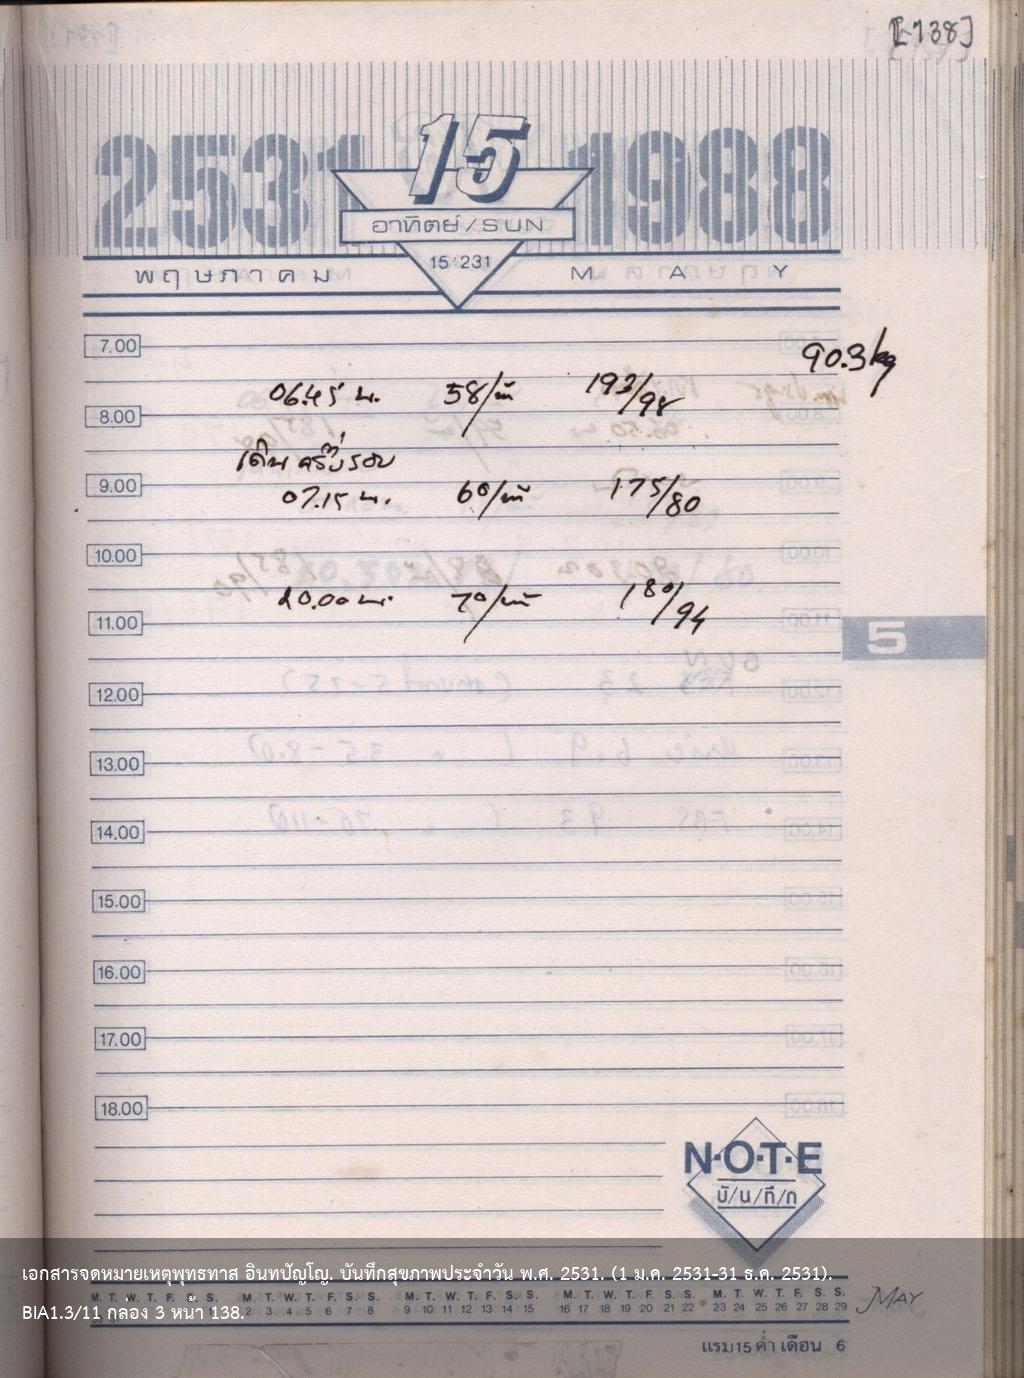 [138]
2531 15 1988
อาทิตย์/SUN
15:231
พฤษภาคม MAY
7.00
90.3 kg
06.45 น. 58/น 193/98
8.00
เดิน ครึ่งรอบ
9.00
07.15 น. 60/น 175/80
10.00
20.00 น. 70/น 180/94
11.00
5
12.00
13.00
14.00
15.00
16.00
17.00
18.00
N·O·T·E
บั/น/ทึ/ก
เอกสารจดหมายเหตุพุทธทาส อินทปัญโญ. บันทึกสุขภาพประจำวัน พ.ศ. 2531. (1 ม.ค. 2531-31 ธ.ค. 2531).
M. T. W. T. F. S. S. M. T. W. T. F. S. S. M. T. W. T. F. S. S. M. T. W. T. F. S. S. M. T. W. T. F. S. S.
BIA1.3/11 กล่อง 3 หน้า 138.
2 3 4 5 6 7 8 9 10 11 12 13 14 15 16 17 18 19 20 21 22 23 24 25 26 27 28 29
MAY
แรม 15 ค่ำ เดือน 6